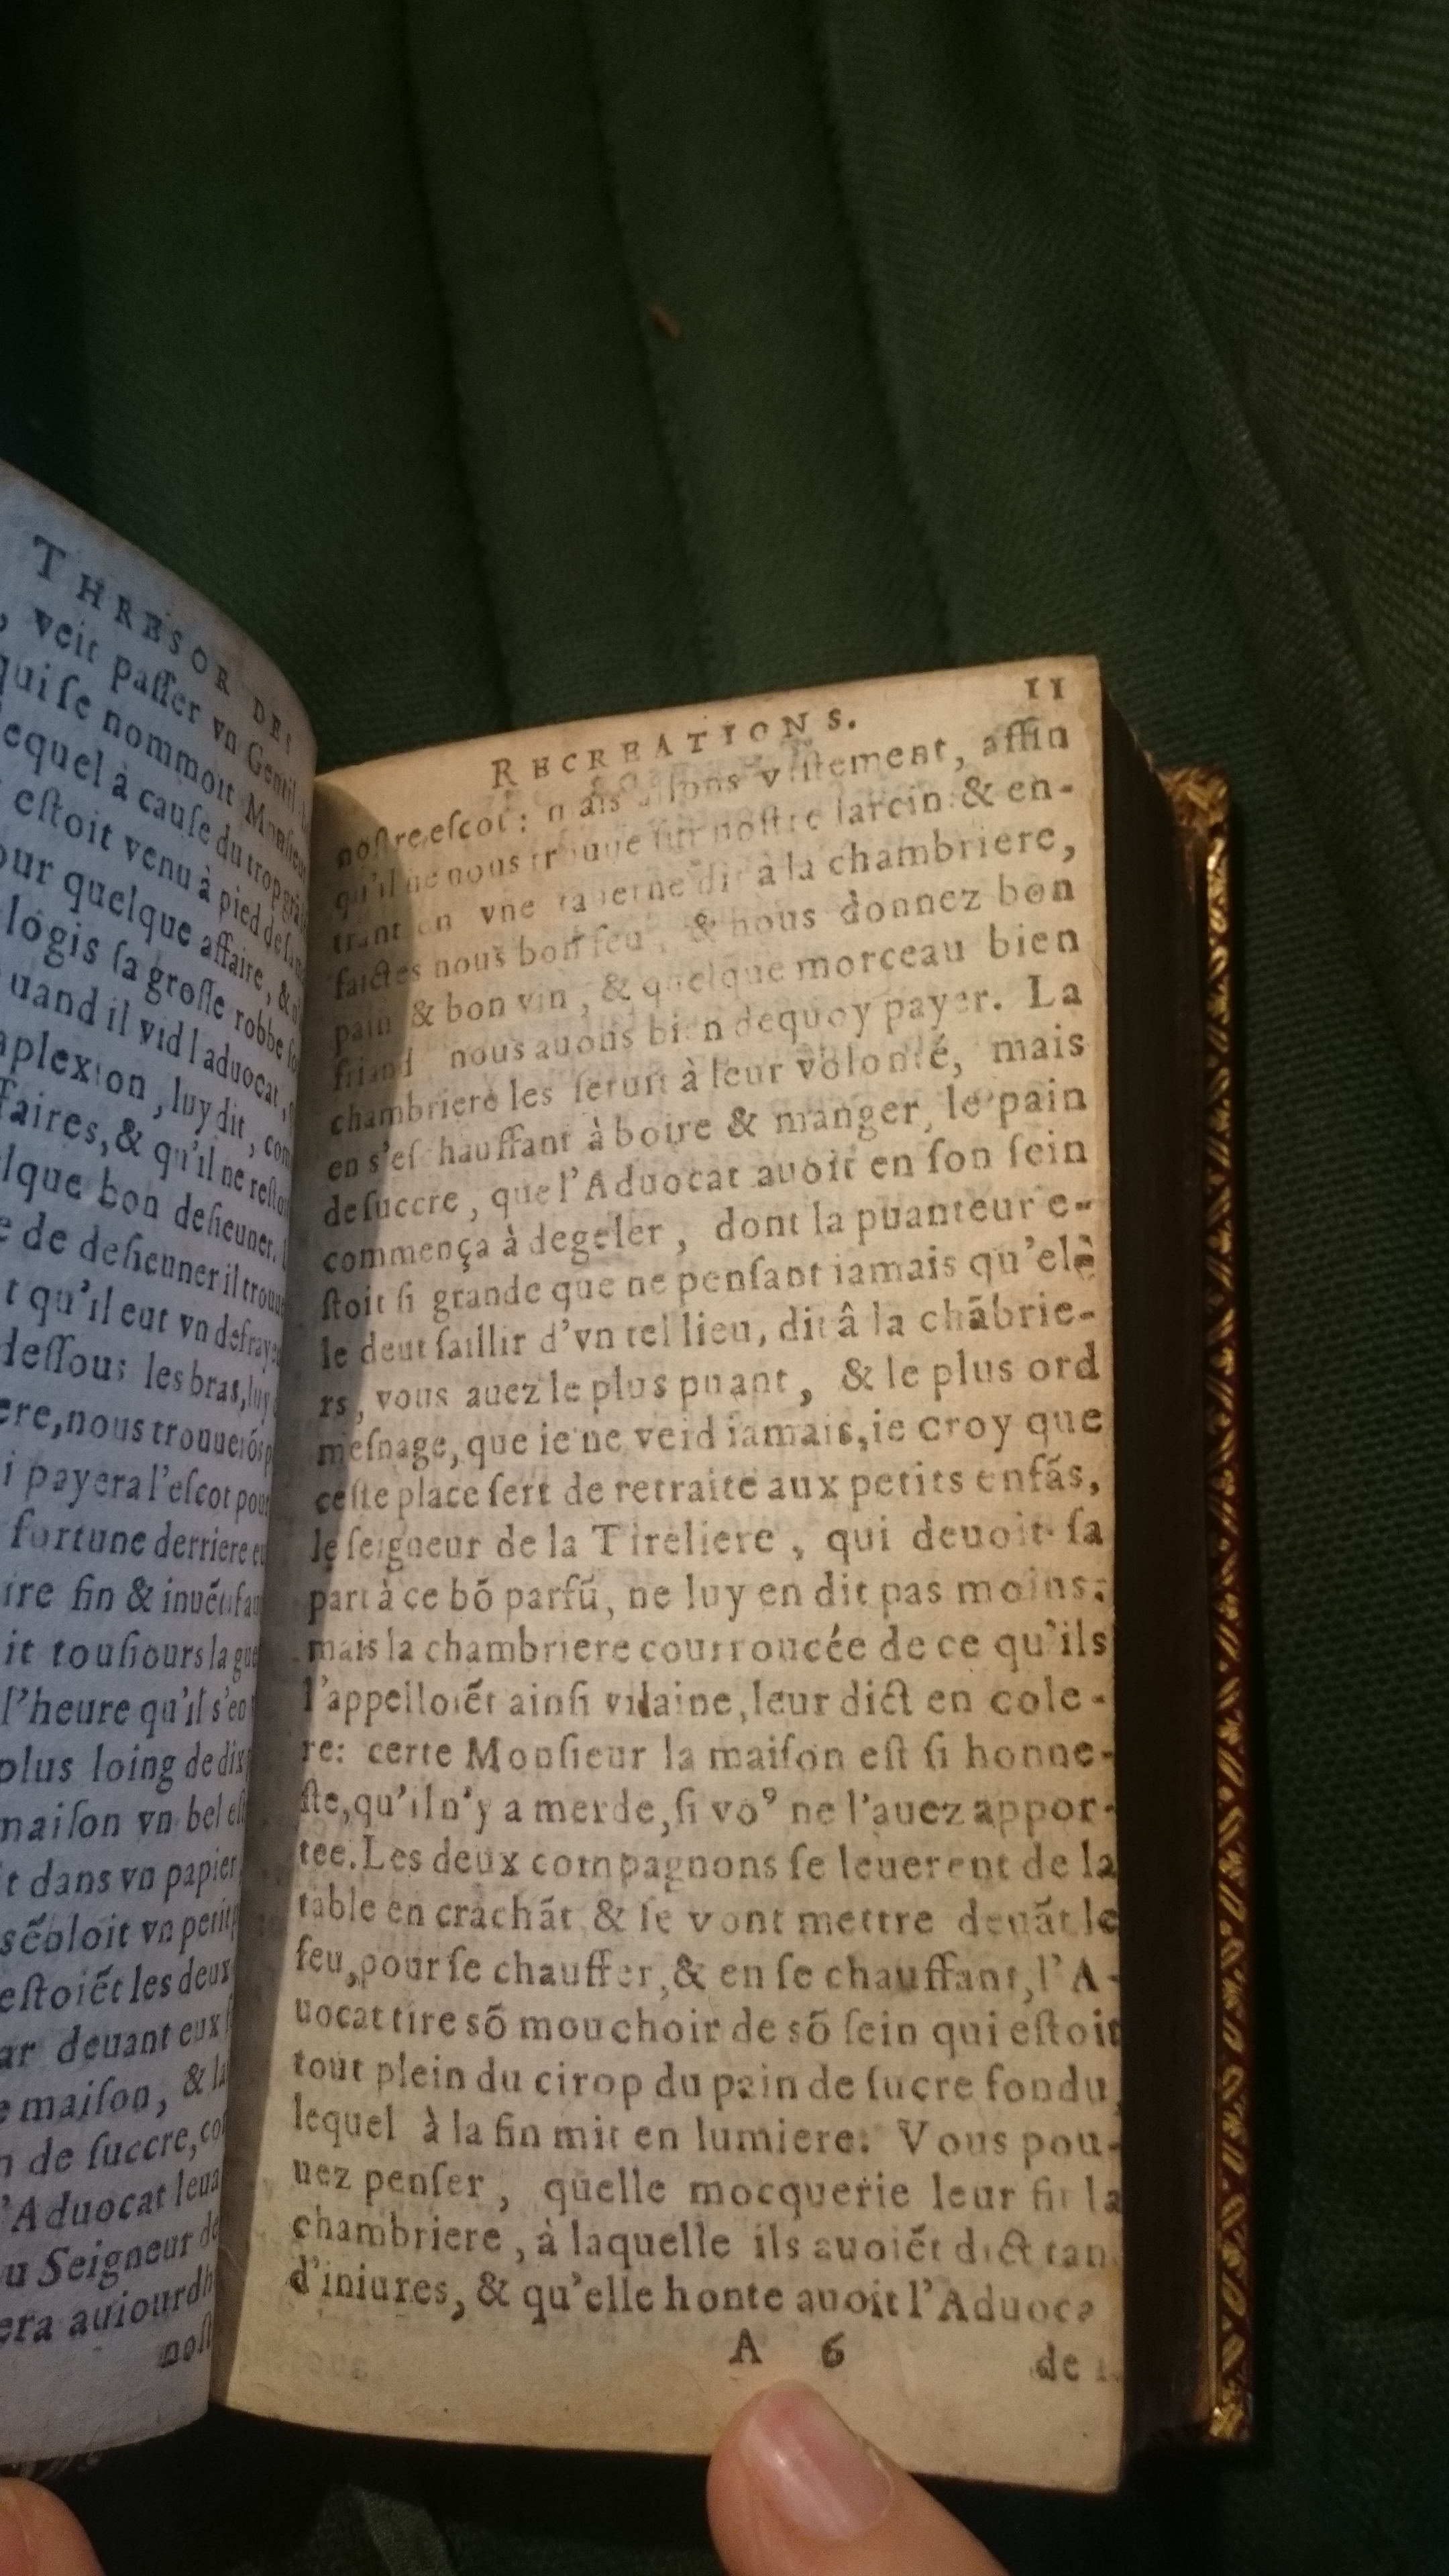 THRESOR DES
, veit passer vn Gentil
qui se nommoit Monsieur
lequel à cause du trop
estoit venu à pied de
our quelque affaire, &
logis sa grosse robbe
uand il vid l aduocat,
plexion, luy dit, com
faires, & qu'il ne resto
lque bon desieuner.
e de desieuner il trouu
t qu'il eut vn defraye
dessous les bras, luy
ere, nous trouuerõs
i payera l'escot pour
fortune derriere eu
ire fin & inuẽtif au
it tousiours la gue
l'heure qu'il s'en
plus loing de dix
maison vn bel est
t dans vn papier
sẽbloit vn petit
estoiẽt les deux
ar deuant eux
e maison, & la
n de succre, co
'Aduocat leua
u Seigneur de
era auiourdh
nost
RECREATIONS. 11
nostre escot : mais allons vistement, affin
qu'il ne nous trouue sur nostre larcin & en-
trant en vne tauerne dit à la chambriere,
faictes nous bon feu, & nous donnez bon
pain & bon vin, & quelque morceau bien
friand nous auons bien dequoy payer. La
chambriere les seruit à leur volonté, mais
en s'eschauffant à boire & manger, le pain
de succre, que l'Aduocat auoit en son sein
commença à degeler, dont la puanteur e-
stoit si grande que ne pensant iamais qu'elè
le deut saillir d'vn tel lieu, dit â la chãbrie-
rs, vous auez le plus puant, & le plus ord
mesnage, que ie ne veid iamais, ie croy que
ceste place sert de retraite aux petits enfãs,
le seigneur de la Tireliere, qui deuoit sa
part à ce bõ parfũ, ne luy en dit pas moins:
mais la chambriere courroucée de ce qu'ils
l'appelloiẽt ainsi vilaine, leur dict en cole-
re: certe Monsieur la maison est si honne-
ste, qu'il n'y a merde, si voꝰ ne l'auez appor-
tee. Les deux compagnons se leuerent de la
table en crachãt & se vont mettre deuãt le
feu, pour se chauffer, & en se chauffant, l'A-
uocat tire sõ mouchoir de sõ sein qui estoit
tout plein du cirop du pain de sucre fondu,
lequel à la fin mit en lumiere: Vous pou-
uez penser, quelle mocquerie leur fit la
chambriere, à laquelle ils auoiẽt dict tan
d'iniures, & qu'elle honte auoit l'Aduoca
A 6 de